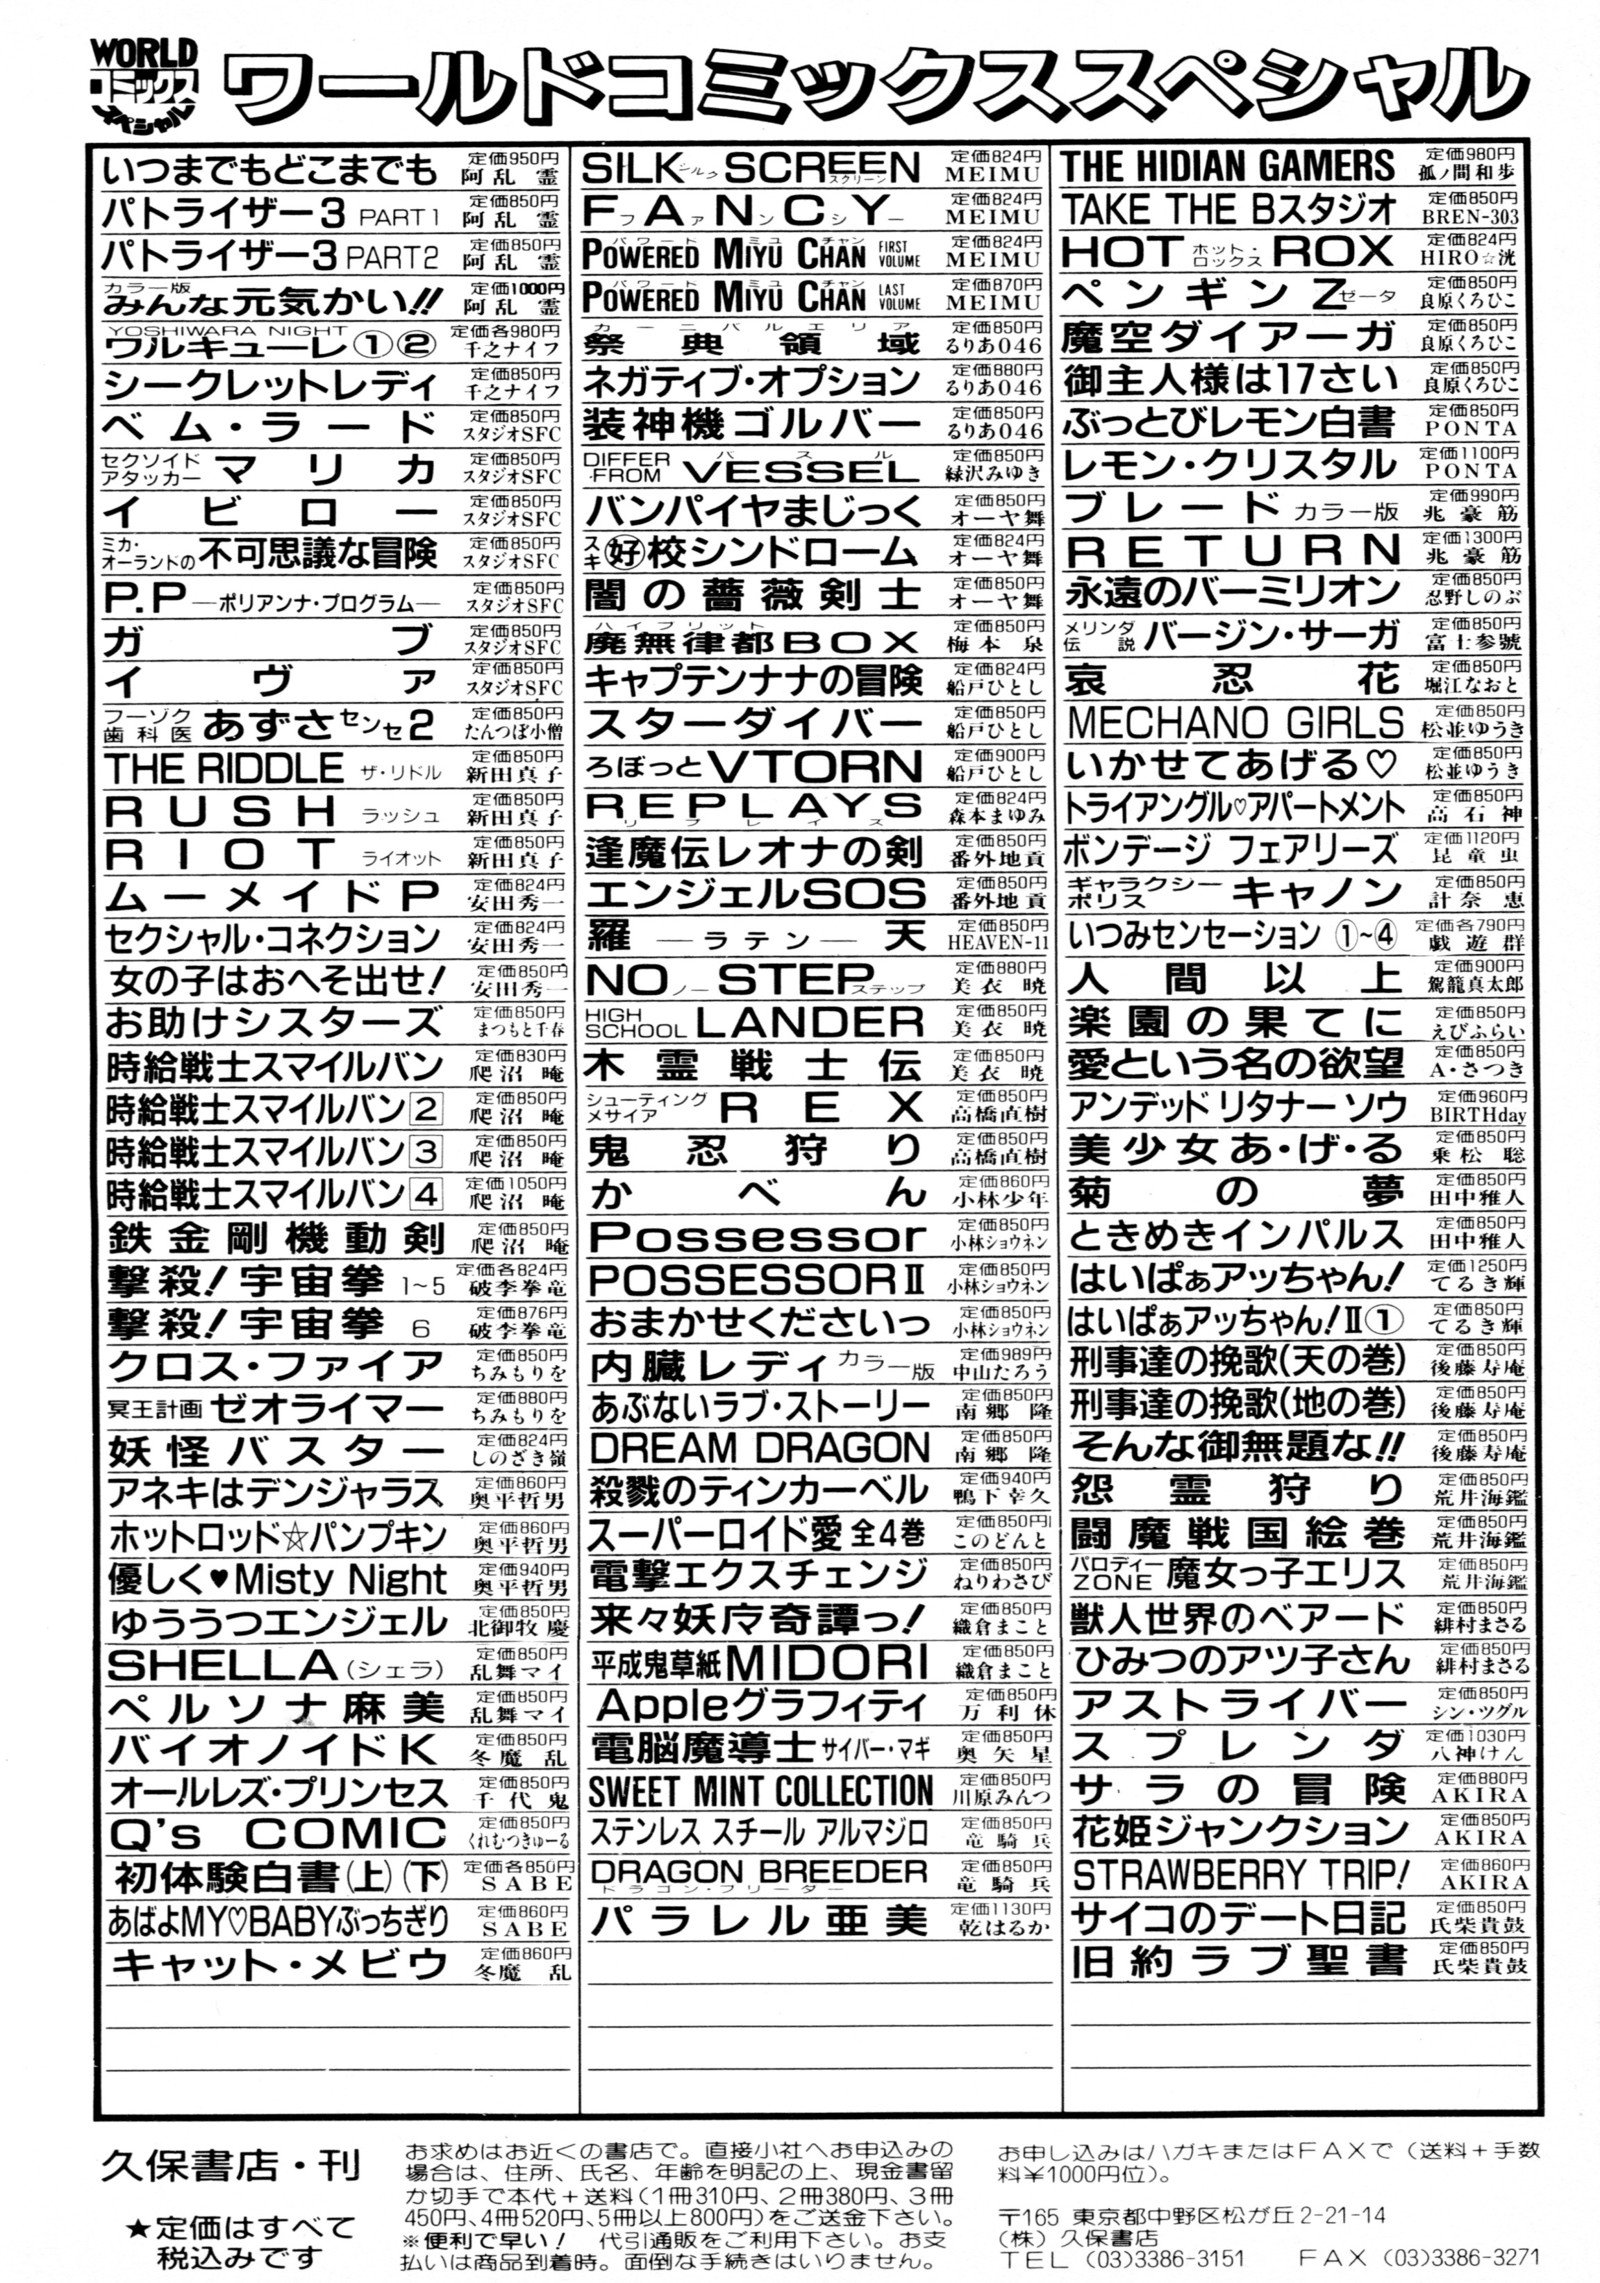 WORLD
コミックス
スペシャル
ワールドコミックススペシャル
いつまでもどこまでも 定価950円 阿乱霊
パトライザー3 PART1 定価850円 阿乱霊
パトライザー3 PART2 定価850円 阿乱霊
カラー版 みんな元気かい!! 定価1000円 阿乱霊
YOSHIWARA NIGHT ワルキューレ①② 定価各980円 千之ナイフ
シークレットレディ 定価850円 千之ナイフ
ベム・ラード 定価850円 スタジオSFC
セクソイドアタッカー マリカ 定価850円 スタジオSFC
イビロー 定価850円 スタジオSFC
ミカ・オーランドの不可思議な冒険 定価850円 スタジオSFC
P.P—ポリアンナ・プログラム— 定価850円 スタジオSFC
ガブ 定価850円 スタジオSFC
イヴァ 定価850円 スタジオSFC
フーゾク歯科医 あずさセンセ2 定価850円 たんつぼ小僧
THE RIDDLE ザ・リドル 定価850円 新田真子
RUSH ラッシュ 定価850円 新田真子
RIOT ライオット 定価850円 新田真子
ムーメイドP 定価824円 安田秀一
セクシャル・コネクション 定価824円 安田秀一
女の子はおへそ出せ! 定価850円 安田秀一
お助けシスターズ 定価850円 まつもと千春
時給戦士スマイルバン 定価830円 爬沼 晻
時給戦士スマイルバン2 定価850円 爬沼 晻
時給戦士スマイルバン3 定価850円 爬沼 晻
時給戦士スマイルバン4 定価1050円 爬沼 晻
鉄金剛機動剣 定価850円 爬沼 晻
撃殺!宇宙拳 1~5 定価各824円 破李拳竜
撃殺!宇宙拳 6 定価876円 破李拳竜
クロス・ファイア 定価850円 ちみもりを
冥王計画 ゼオライマー 定価880円 ちみもりを
妖怪バスター 定価824円 しのざき嶺
アネキはデンジャラス 定価860円 奥平哲男
ホットロッド☆パンプキン 定価860円 奥平哲男
優しく♥Misty Night 定価940円 奥平哲男
ゆううつエンジェル 定価850円 北御牧慶
SHELLA(シェラ) 定価850円 乱舞マイ
ペルソナ麻美 定価850円 乱舞マイ
バイオノイドK 定価850円 冬魔乱
オールレズ・プリンセス 定価850円 千代鬼
Q's COMIC 定価850円 くれむつきゅーる
初体験白書(上)(下) 定価各850円 SABE
あばよMY♡BABYぶっちぎり 定価860円 SABE
キャット・メビウ 定価860円 冬魔乱
SILK シルク SCREEN スクリーン 定価824円 MEIMU
FANCY ファンシー 定価824円 MEIMU
POWERED MIYU CHAN パワード ミユ チャン FIRST VOLUME 定価824円 MEIMU
POWERED MIYU CHAN パワード ミユ チャン LAST VOLUME 定価870円 MEIMU
祭典領域 カーニバルエリア 定価850円 るりあ046
ネガティブ・オプション 定価880円 るりあ046
装神機ゴルバー 定価850円 るりあ046
DIFFER FROM VESSEL バスル 定価850円 緑沢みゆき
バンパイヤまじっく 定価850円 オーヤ舞
スキ 好校シンドローム 定価824円 オーヤ舞
闇の薔薇剣士 定価850円 オーヤ舞
廃無律都BOX ハイフリット 定価850円 梅本泉
キャプテンナナの冒険 定価824円 船戸ひとし
スターダイバー 定価850円 船戸ひとし
ろぼっとVTORN 定価900円 船戸ひとし
REPLAYS リプレイス 定価824円 森本まゆみ
逢魔伝レオナの剣 定価850円 番外地貢
エンジェルSOS 定価850円 番外地貢
羅—ラテン—天 定価850円 HEAVEN-11
NO ノー STEP ステップ 定価880円 美衣暁
HIGH SCHOOL LANDER 定価850円 美衣暁
木霊戦士伝 定価850円 美衣暁
シューティングメサイア REX 定価850円 高橋直樹
鬼忍狩り 定価850円 高橋直樹
かべん 定価860円 小林少年
Possessor 定価850円 小林ショウネン
POSSESSOR II 定価850円 小林ショウネン
おまかせくださいっ 定価850円 小林ショウネン
内臓レディ カラー版 定価989円 中山たろう
あぶないラブ・ストーリー 定価850円 南郷隆
DREAM DRAGON 定価850円 南郷隆
殺戮のティンカーベル 定価940円 鴨下幸久
スーパーロイド愛 全4巻 定価850円 このどんと
電撃エクスチェンジ 定価850円 ねりわさび
来々妖庁奇譚っ! 定価850円 織倉まこと
平成鬼草紙MIDORI 定価850円 織倉まこと
Appleグラフィティ 定価850円 万利休
電脳魔導士 サイバー・マギ 定価850円 奥矢星
SWEET MINT COLLECTION 定価850円 川原みんつ
ステンレス スチール アルマジロ 定価850円 竜騎兵
DRAGON BREEDER ドラゴン・ブリーダー 定価850円 竜騎兵
パラレル亜美 定価1130円 乾はるか
THE HIDIAN GAMERS 定価980円 孤ノ間和歩
TAKE THE Bスタジオ 定価850円 BREN-303
HOT ホット・ロックス ROX 定価824円 HIRO☆洸
ペンギンZ ゼータ 定価850円 良原くろひこ
魔空ダイアーガ 定価850円 良原くろひこ
御主人様は17さい 定価850円 良原くろひこ
ぶっとびレモン白書 定価850円 PONTA
レモン・クリスタル 定価1100円 PONTA
ブレード カラー版 定価990円 兆豪筋
RETURN 定価1300円 兆豪筋
永遠のバーミリオン 定価850円 忍野しのぶ
メリンダ伝説 バージン・サーガ 定価850円 富士参號
哀忍花 定価850円 堀江なおと
MECHANO GIRLS 定価850円 松並ゆうき
いかせてあげる♡ 定価850円 松並ゆうき
トライアングル♡アパートメント 定価850円 高石神
ボンデージ フェアリーズ 定価1120円 昆童虫
ギャラクシーポリス キャノン 定価850円 計奈恵
いつみセンセーション ①~④ 定価各790円 戯遊群
人間以上 定価900円 駕籠真太郎
楽園の果てに 定価850円 えびふらい
愛という名の欲望 定価850円 A・さつき
アンデッド リタナー ソウ 定価960円 BIRTHday
美少女あ・げ・る 定価850円 乗松聡
菊の夢 定価850円 田中雅人
ときめきインパルス 定価850円 田中雅人
はいぱぁアッちゃん! 定価1250円 てるき輝
はいぱぁアッちゃん!II① 定価850円 てるき輝
刑事達の挽歌(天の巻) 定価850円 後藤寿庵
刑事達の挽歌(地の巻) 定価850円 後藤寿庵
そんな御無題な!! 定価850円 後藤寿庵
怨霊狩り 定価850円 荒井海鑑
闘魔戦国絵巻 定価850円 荒井海鑑
パロディーZONE 魔女っ子エリス 定価850円 荒井海鑑
獣人世界のベアード 定価850円 緋村まさる
ひみつのアツ子さん 定価850円 緋村まさる
アストライバー 定価850円 シン・ツグル
スプレンダ 定価1030円 八神けん
サラの冒険 定価880円 AKIRA
花姫ジャンクション 定価850円 AKIRA
STRAWBERRY TRIP! 定価860円 AKIRA
サイコのデート日記 定価850円 氏柴貴鼓
旧約ラブ聖書 定価850円 氏柴貴鼓
久保書店・刊
★定価はすべて
税込みです
お求めはお近くの書店で。直接小社へお申込みの
場合は、住所、氏名、年齢を明記の上、現金書留
か切手で本代+送料(1冊310円、2冊380円、3冊
450円、4冊520円、5冊以上800円)をご送金下さい。
※便利で早い! 代引通販をご利用下さい。お支
払いは商品到着時。面倒な手続きはいりません。
お申し込みはハガキまたはFAXで(送料+手数
料¥1000円位)。
〒165 東京都中野区松が丘2-21-14
(株)久保書店
TEL (03)3386-3151 FAX (03)3386-3271